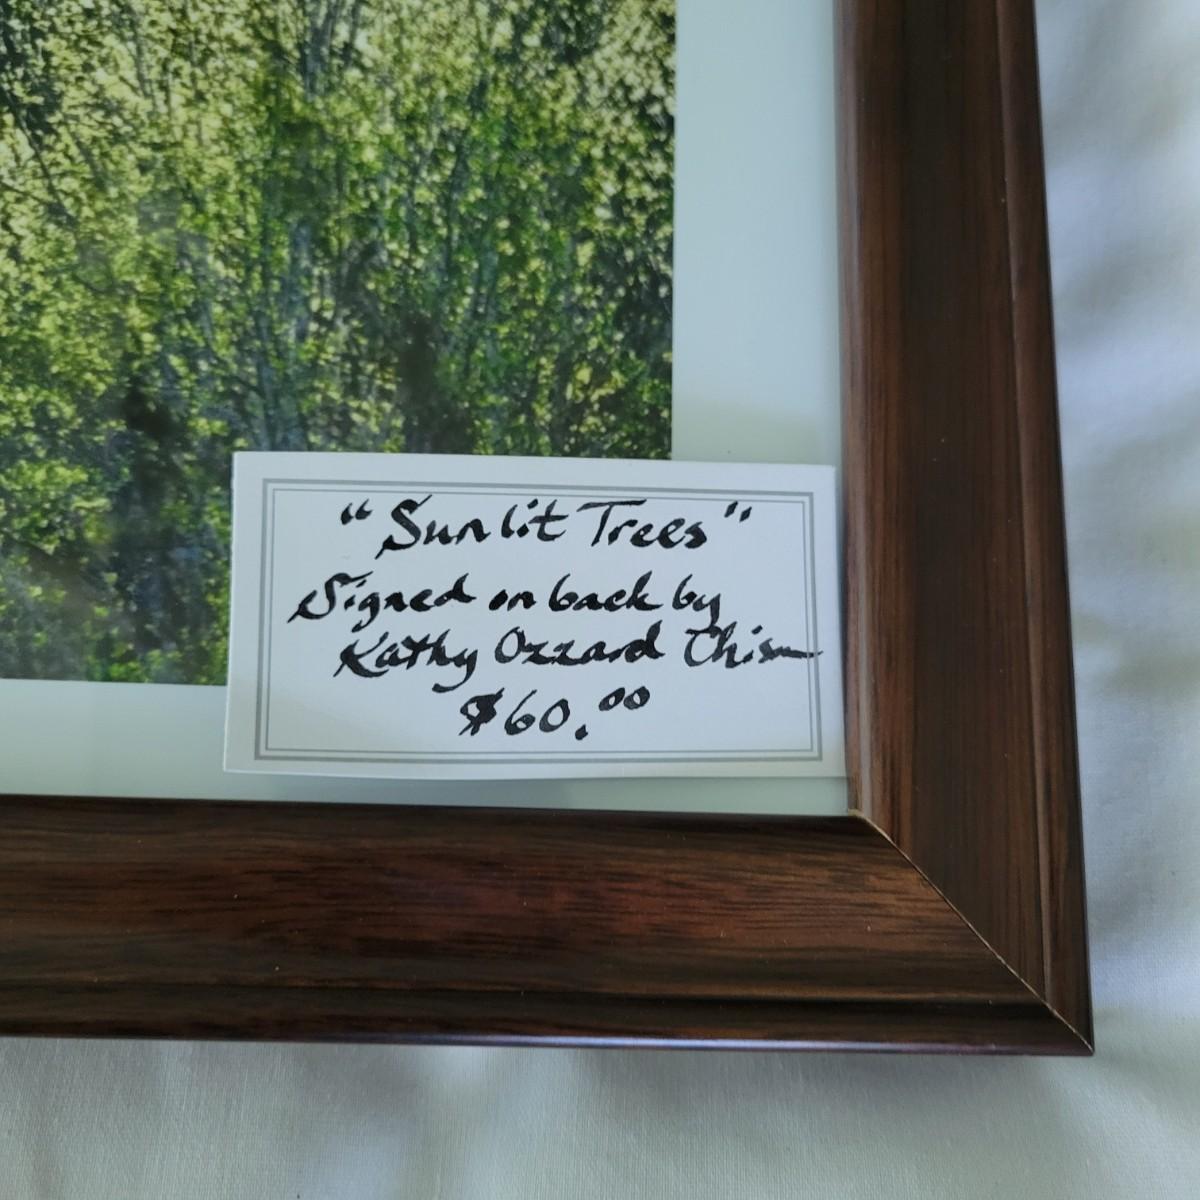 "Sunlit Trees"
Signed on back by
Kathy Ozzard Chism
$60.00